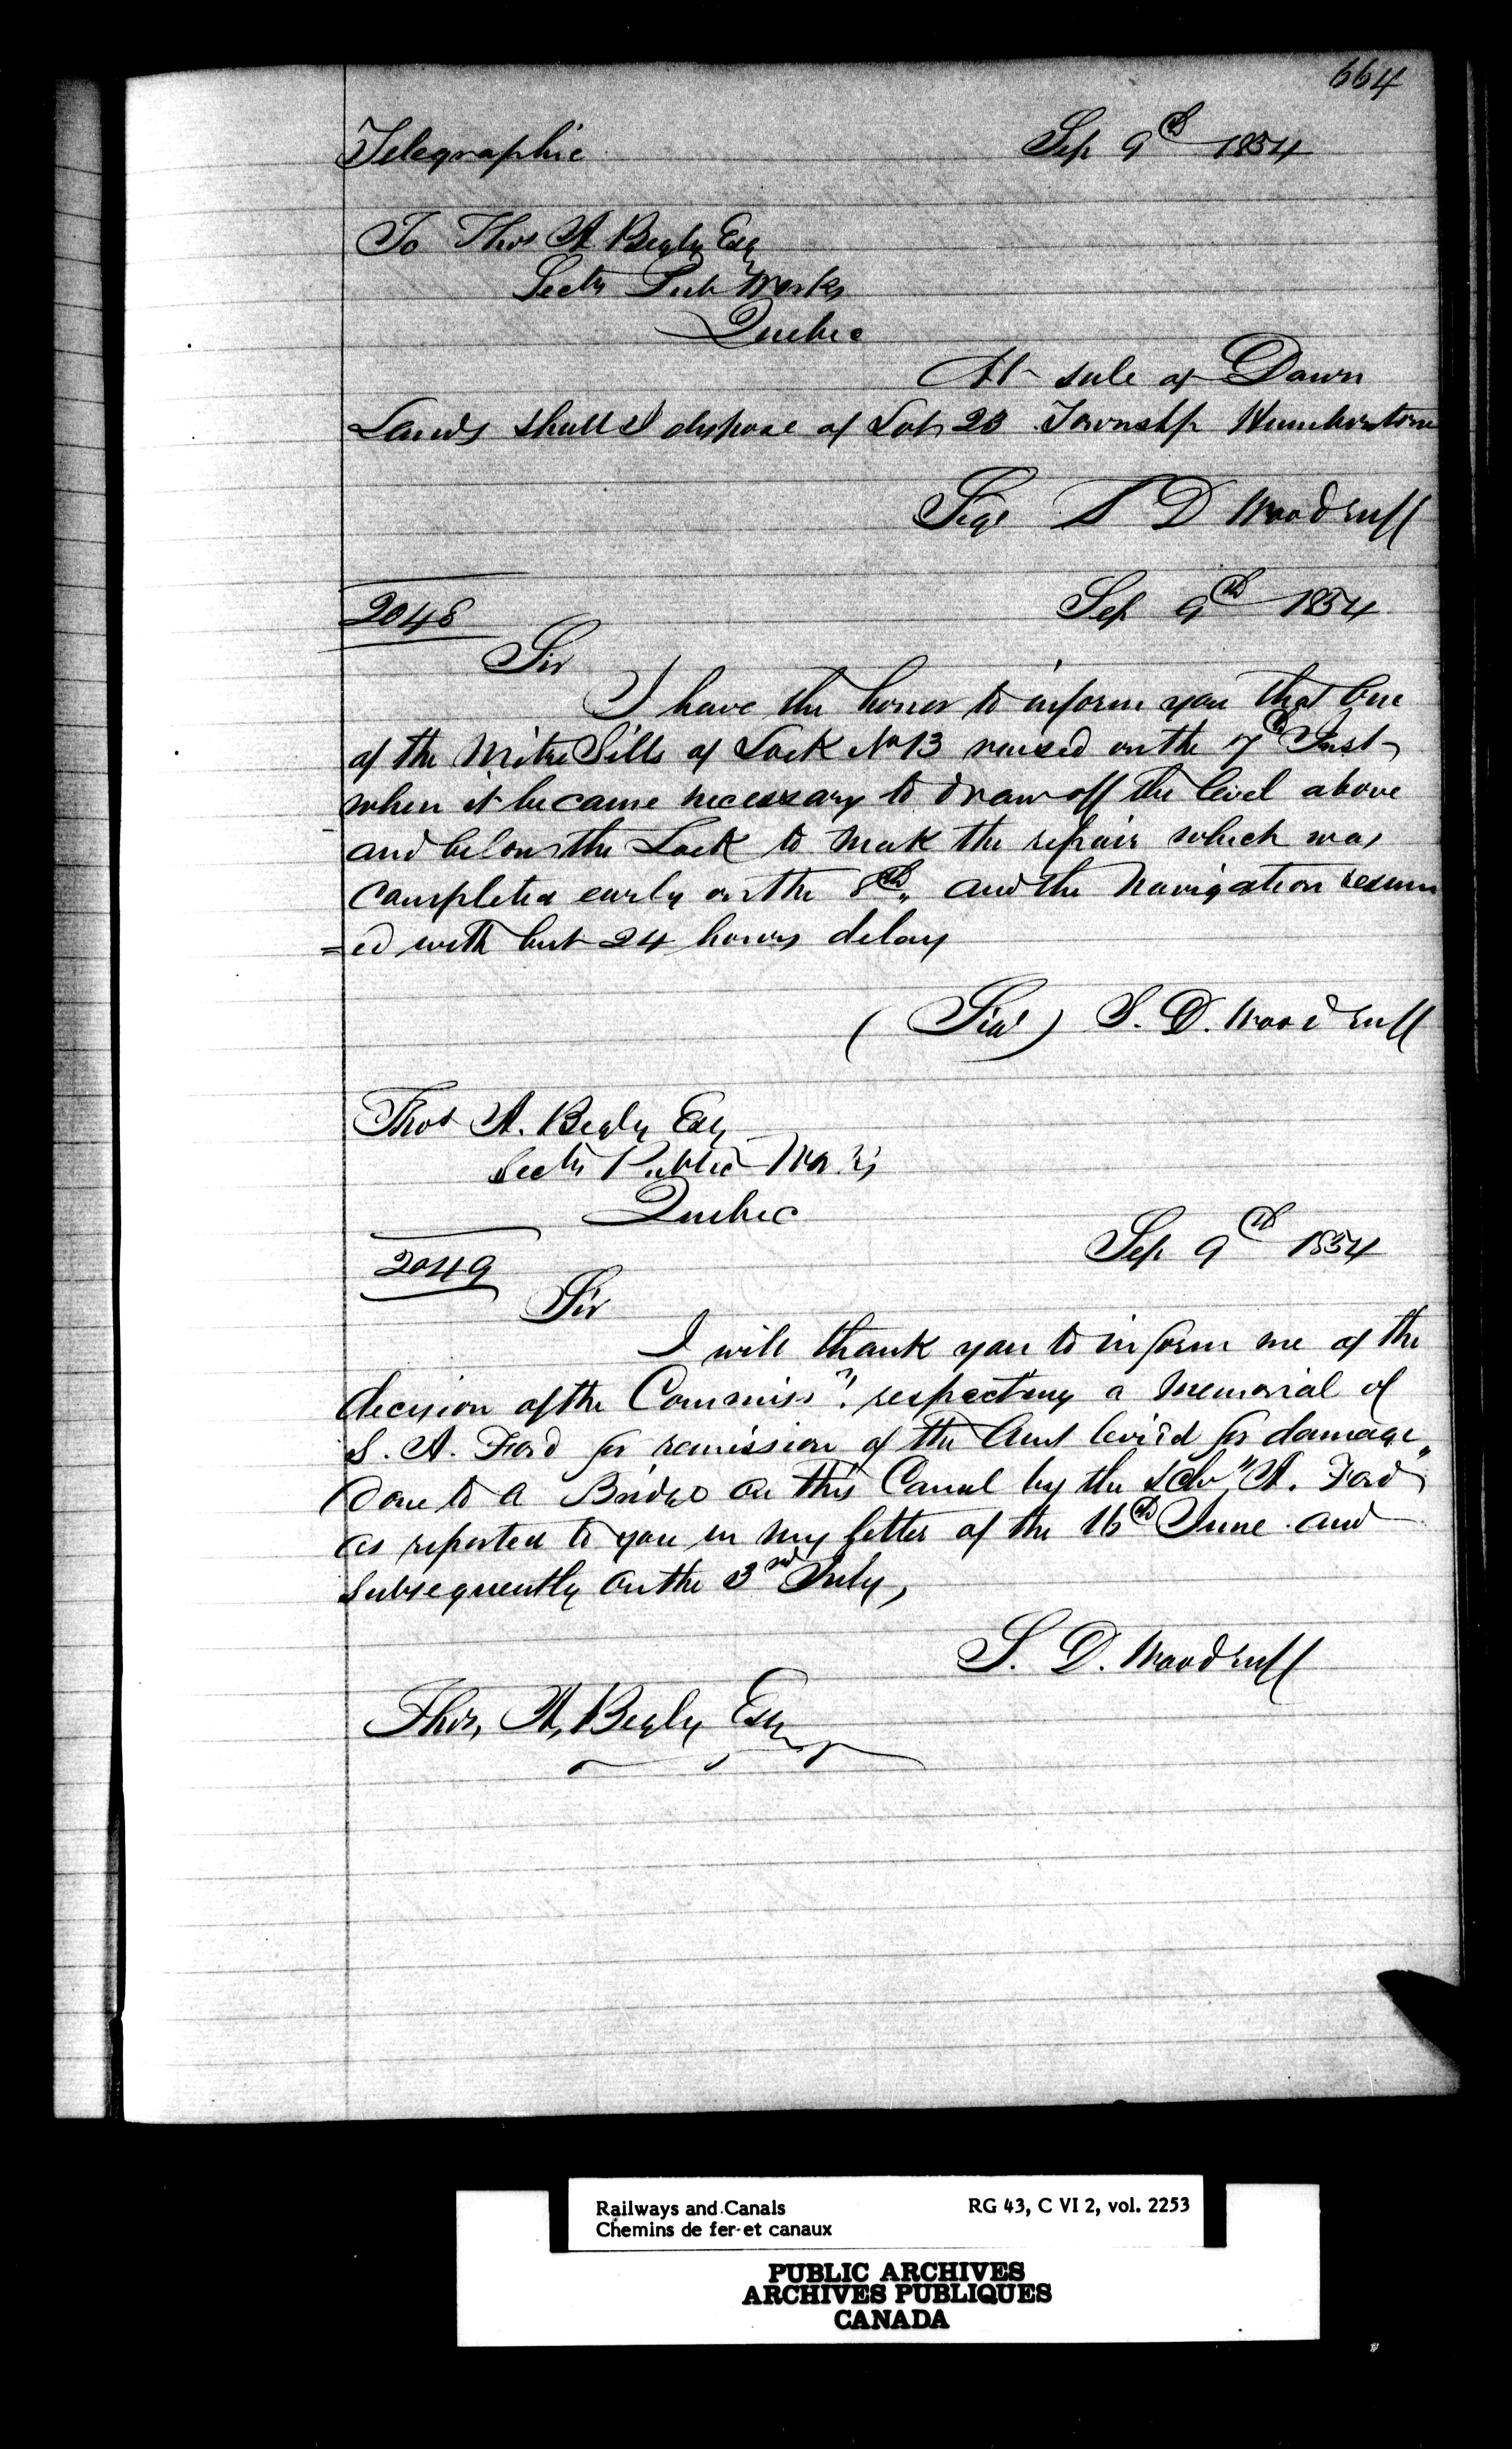 664
Telegraphic Sep 9th 1854
To Thos A Begly Esq
Secty Pub Works
Quebec
At sale of Dawn
Lands shall I dispose of Lot 23 Township Humberstone
Sigd S D Woodruff
2048 Sep 9th 1854
Sir
I have the honor to inform you that One
of the Mitre Sills of Lock No 13 raised on the 7th Inst
when it became necessary to draw off the level above
and below the Lock to mak the repair which was
completed early on the 8th, and the navigation resum
=ed with but 24 hours delay
(Sigd) S. D. Woodruff
Thos A. Begly Esq
Secty Public Works
Quebec
2049 Sep 9th 1854
Sir
I will thank you to inform me of the
decision of the Commissrs. respecting a memorial of
S. A. Ford for remission of the Amt levied for damage
done to a Bridge on this Canal by the Schr "A. Ford"
as reported to you in my letter of the 16th June and
subsequently on the 3rd July,
S. D. Woodruff
Thos, A, Begly Esq
Railways and Canals RG 43, C VI 2, vol. 2253
Chemins de fer et canaux
PUBLIC ARCHIVES
ARCHIVES PUBLIQUES
CANADA